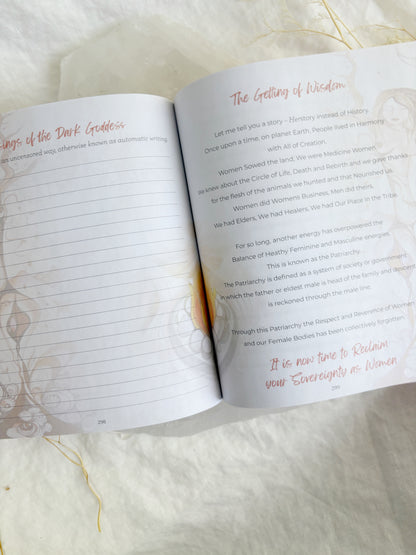 ings of the Dark Goddess
an uncensored way, otherwise known as automatic writing.
298
The Getting of Wisdom
Let me tell you a story - Herstory instead of History.
Once upon a time, on planet Earth, People lived in Harmony
with All of Creation.
Women Sowed the land, We were Medicine Women.
We knew about the Circle of Life, Death and Rebirth and we gave thanks
for the flesh of the animals we hunted and that Nourished us.
Women did Womens Business, Men did theirs.
We had Elders, We had Healers, We had Our Place In the Tribe.
For so long, another energy has overpowered the
Balance of Heathy Feminine and Masculine energies.
This is known as the Patriarchy.
The Patriarchy is defined as a system of society or government
in which the father or eldest male is head of the family and
is reckoned through the male line.
Through this Patriarchy the Respect and Reverence of Women
and our Female Bodies has been collectively forgotten.
It is now time to Reclaim
your Sovereignty as Women
299